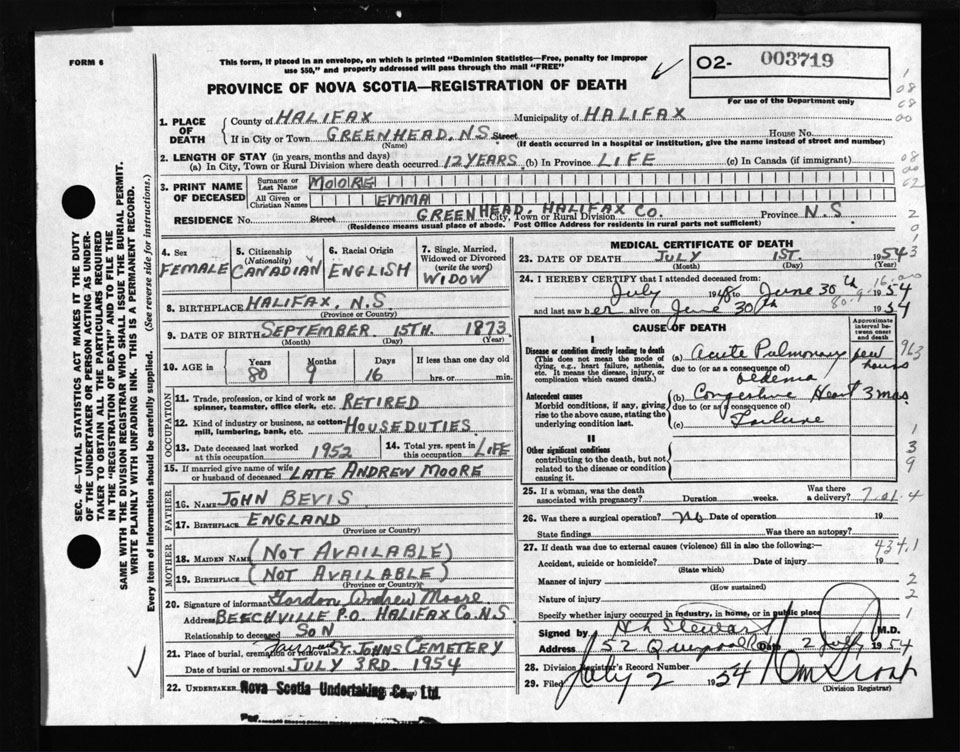 FORM 6
This form, if placed in an envelope, on which is printed "Dominion Statistics—Free, penalty for improper
use $50," and properly addressed will pass through the mail "FREE"
PROVINCE OF NOVA SCOTIA—REGISTRATION OF DEATH
02- 003719
For use of the Department only
1. PLACE OF DEATH
County of HALIFAX Municipality of HALIFAX
If in City or Town GREENHEAD, N.S Street House No.
(Name) (If death occurred in a hospital or institution, give the name instead of street and number)
2. LENGTH OF STAY (in years, months and days)
(a) In City, Town or Rural Division where death occurred 12 YEARS (b) In Province LIFE (c) In Canada (if immigrant)
3. PRINT NAME OF DECEASED
Surname or Last Name MOORE
All Given or Christian Names EMMA
RESIDENCE No. Street GREENHEAD. HALIFAX CO. City, Town or Rural Division Province N.S.
(Residence means usual place of abode. Post Office Address for residents in rural parts not sufficient)
4. Sex FEMALE
5. Citizenship (Nationality) CANADIAN
6. Racial Origin ENGLISH
7. Single, Married, Widowed or Divorced (write the word) WIDOW
8. BIRTHPLACE HALIFAX, N.S
(Province or Country)
9. DATE OF BIRTH SEPTEMBER 15TH. 1873
(Month) (Day) (Year)
10. AGE in Years 80 Months 9 Days 16 If less than one day old hrs. or min.
OCCUPATION
11. Trade, profession, or kind of work as spinner, teamster, office clerk, etc. RETIRED
12. Kind of industry or business, as cotton-mill, lumbering, bank, etc. HOUSEDUTIES
13. Date deceased last worked at this occupation 1952
14. Total yrs. spent in this occupation LIFE
15. If married give name of wife or husband of deceased LATE ANDREW MOORE
FATHER
16. Name JOHN BEVIS
17. Birthplace ENGLAND
(Province or Country)
MOTHER
18. Maiden Name (NOT AVAILABLE)
19. Birthplace (NOT AVAILABLE)
(Province or Country)
20. Signature of informant Gordon Andrew Moore
Address BEECHVILLE P.O. HALIFAX CO. N.S
Relationship to deceased SON
21. Place of burial, cremation or removal Fairview ST. JOHNS CEMETERY
Date of burial or removal JULY 3RD. 1954
22. UNDERTAKER Nova Scotia Undertaking Co., Ltd.
Per
MEDICAL CERTIFICATE OF DEATH
23. DATE OF DEATH JULY 1ST. 1954
(Month) (Day) (Year)
24. I HEREBY CERTIFY that I attended deceased from:
July 1948 to June 30th 1954
and last saw her alive on June 30th 1954
CAUSE OF DEATH
Approximate interval between onset and death
I
Disease or condition directly leading to death
(This does not mean the mode of dying, e.g., heart failure, asthenia, etc. It means the disease, injury, or complication which caused death.)
(a) Acute Pulmonary oedema few hours
due to (or as a consequence of)
Antecedent causes
Morbid conditions, if any, giving rise to the above cause, stating the underlying condition last.
(b) Congestive Heart Failure 3 mos.
due to (or as consequence of)
(c)
II
Other significant conditions
contributing to the death, but not related to the disease or condition causing it.
25. If a woman, was the death associated with pregnancy? Duration weeks. Was there a delivery?
26. Was there a surgical operation? No Date of operation 19
State findings Was there an autopsy?
27. If death was due to external causes (violence) fill in also the following:—
Accident, suicide or homicide? Date of injury 19
(State which)
Manner of injury
(How sustained)
Nature of injury
Specify whether injury occurred in industry, in home, or in public place
Signed by M.D.
Address 52 Quinpool Rd Date 2 July 1954
28. Division Registrar's Record Number
29. Filed July 2 1954
(Division Registrar)
963
7.01.4
434.1
SEC. 46—VITAL STATISTICS ACT MAKES IT THE DUTY
OF THE UNDERTAKER OR PERSON ACTING AS UNDER-
TAKER TO OBTAIN ALL THE PARTICULARS REQUIRED
IN THE "REGISTRATION OF DEATH" AND TO FILE THE
SAME WITH THE DIVISION REGISTRAR WHO SHALL ISSUE THE BURIAL PERMIT.
WRITE PLAINLY WITH UNFADING INK. THIS IS A PERMANENT RECORD.
Every item of information should be carefully supplied. (See reverse side for instructions.)